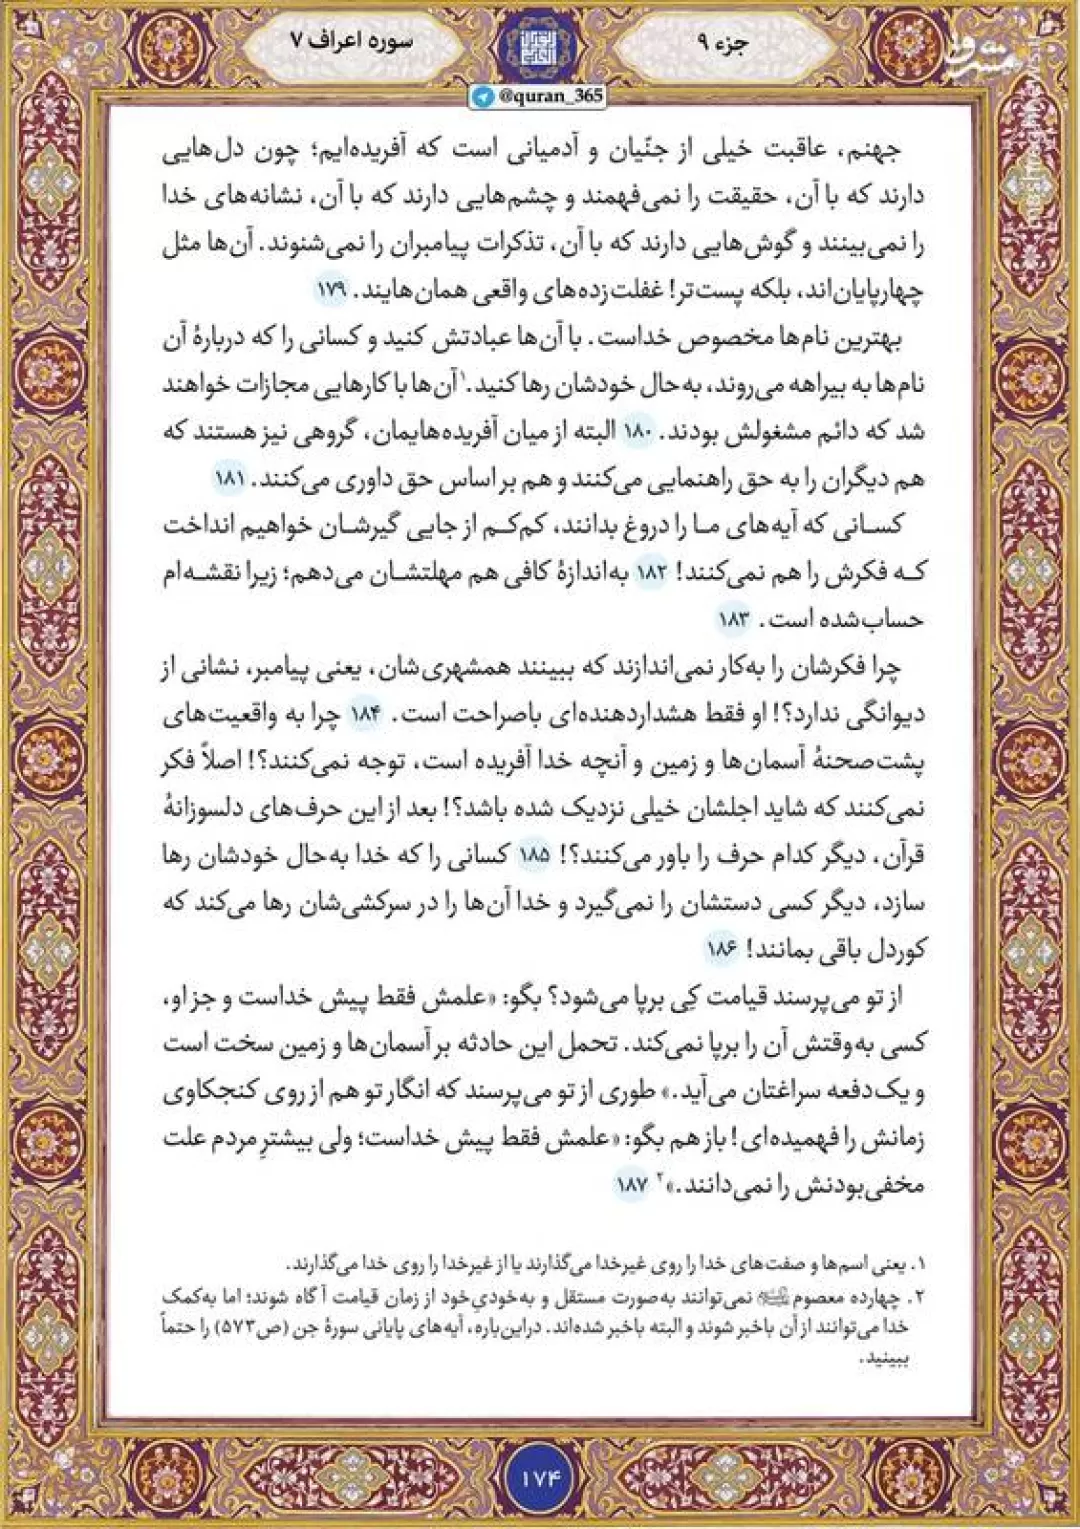 جزء ۹
سوره اعراف ۷
@quran_365
مشرق
جهنم، عاقبت خیلی از جنّیان و آدمیانی است که آفریده‌ایم؛ چون دل‌هایی
دارند که با آن، حقیقت را نمی‌فهمند و چشم‌هایی دارند که با آن، نشانه‌های خدا
را نمی‌بینند و گوش‌هایی دارند که با آن، تذکرات پیامبران را نمی‌شنوند. آن‌ها مثل
چهارپایان‌اند، بلکه پست‌تر! غفلت‌زده‌های واقعی همان‌هایند. ۱۷۹
بهترین نام‌ها مخصوص خداست. با آن‌ها عبادتش کنید و کسانی را که دربارهٔ آن
نام‌ها به بیراهه می‌روند، به‌حال خودشان رها کنید.۱ آن‌ها با کارهایی مجازات خواهند
شد که دائم مشغولش بودند. ۱۸۰ البته از میان آفریده‌هایمان، گروهی نیز هستند که
هم دیگران را به حق راهنمایی می‌کنند و هم بر اساس حق داوری می‌کنند. ۱۸۱
کسانی که آیه‌های ما را دروغ بدانند، کم‌کم از جایی گیرشان خواهیم انداخت
که فکرش را هم نمی‌کنند! ۱۸۲ به‌اندازهٔ کافی هم مهلتشان می‌دهم؛ زیرا نقشه‌ام
حساب‌شده است. ۱۸۳
چرا فکرشان را به‌کار نمی‌اندازند که ببینند همشهری‌شان، یعنی پیامبر، نشانی از
دیوانگی ندارد؟! او فقط هشداردهنده‌ای باصراحت است. ۱۸۴ چرا به واقعیت‌های
پشت‌صحنهٔ آسمان‌ها و زمین و آنچه خدا آفریده است، توجه نمی‌کنند؟! اصلاً فکر
نمی‌کنند که شاید اجلشان خیلی نزدیک شده باشد؟! بعد از این حرف‌های دلسوزانهٔ
قرآن، دیگر کدام حرف را باور می‌کنند؟! ۱۸۵ کسانی را که خدا به‌حال خودشان رها
سازد، دیگر کسی دستشان را نمی‌گیرد و خدا آن‌ها را در سرکشی‌شان رها می‌کند که
کوردل باقی بمانند! ۱۸۶
از تو می‌پرسند قیامت کِی برپا می‌شود؟ بگو: «علمش فقط پیش خداست و جز او،
کسی به‌وقتش آن را برپا نمی‌کند. تحمل این حادثه بر آسمان‌ها و زمین سخت است
و یک‌دفعه سراغتان می‌آید.» طوری از تو می‌پرسند که انگار تو هم از روی کنجکاوی
زمانش را فهمیده‌ای! باز هم بگو: «علمش فقط پیش خداست؛ ولی بیشترِ مردم علت
مخفی‌بودنش را نمی‌دانند.»۲ ۱۸۷
۱. یعنی اسم‌ها و صفت‌های خدا را روی غیرخدا می‌گذارند یا از غیرخدا را روی خدا می‌گذارند.
۲. چهارده معصوم نمی‌توانند به‌صورت مستقل و به‌خودیِ‌خود از زمان قیامت آگاه شوند؛ اما به‌کمک
خدا می‌توانند از آن باخبر شوند و البته باخبر شده‌اند. دراین‌باره، آیه‌های پایانی سورهٔ جن (ص۵۷۳) را حتماً
ببینید.
۱۷۴